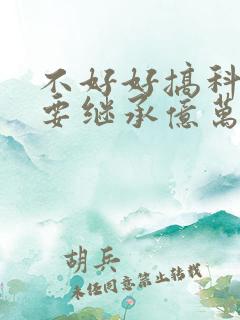 不好好搞科
要继承亿萬
胡兵
未经同意禁止转载